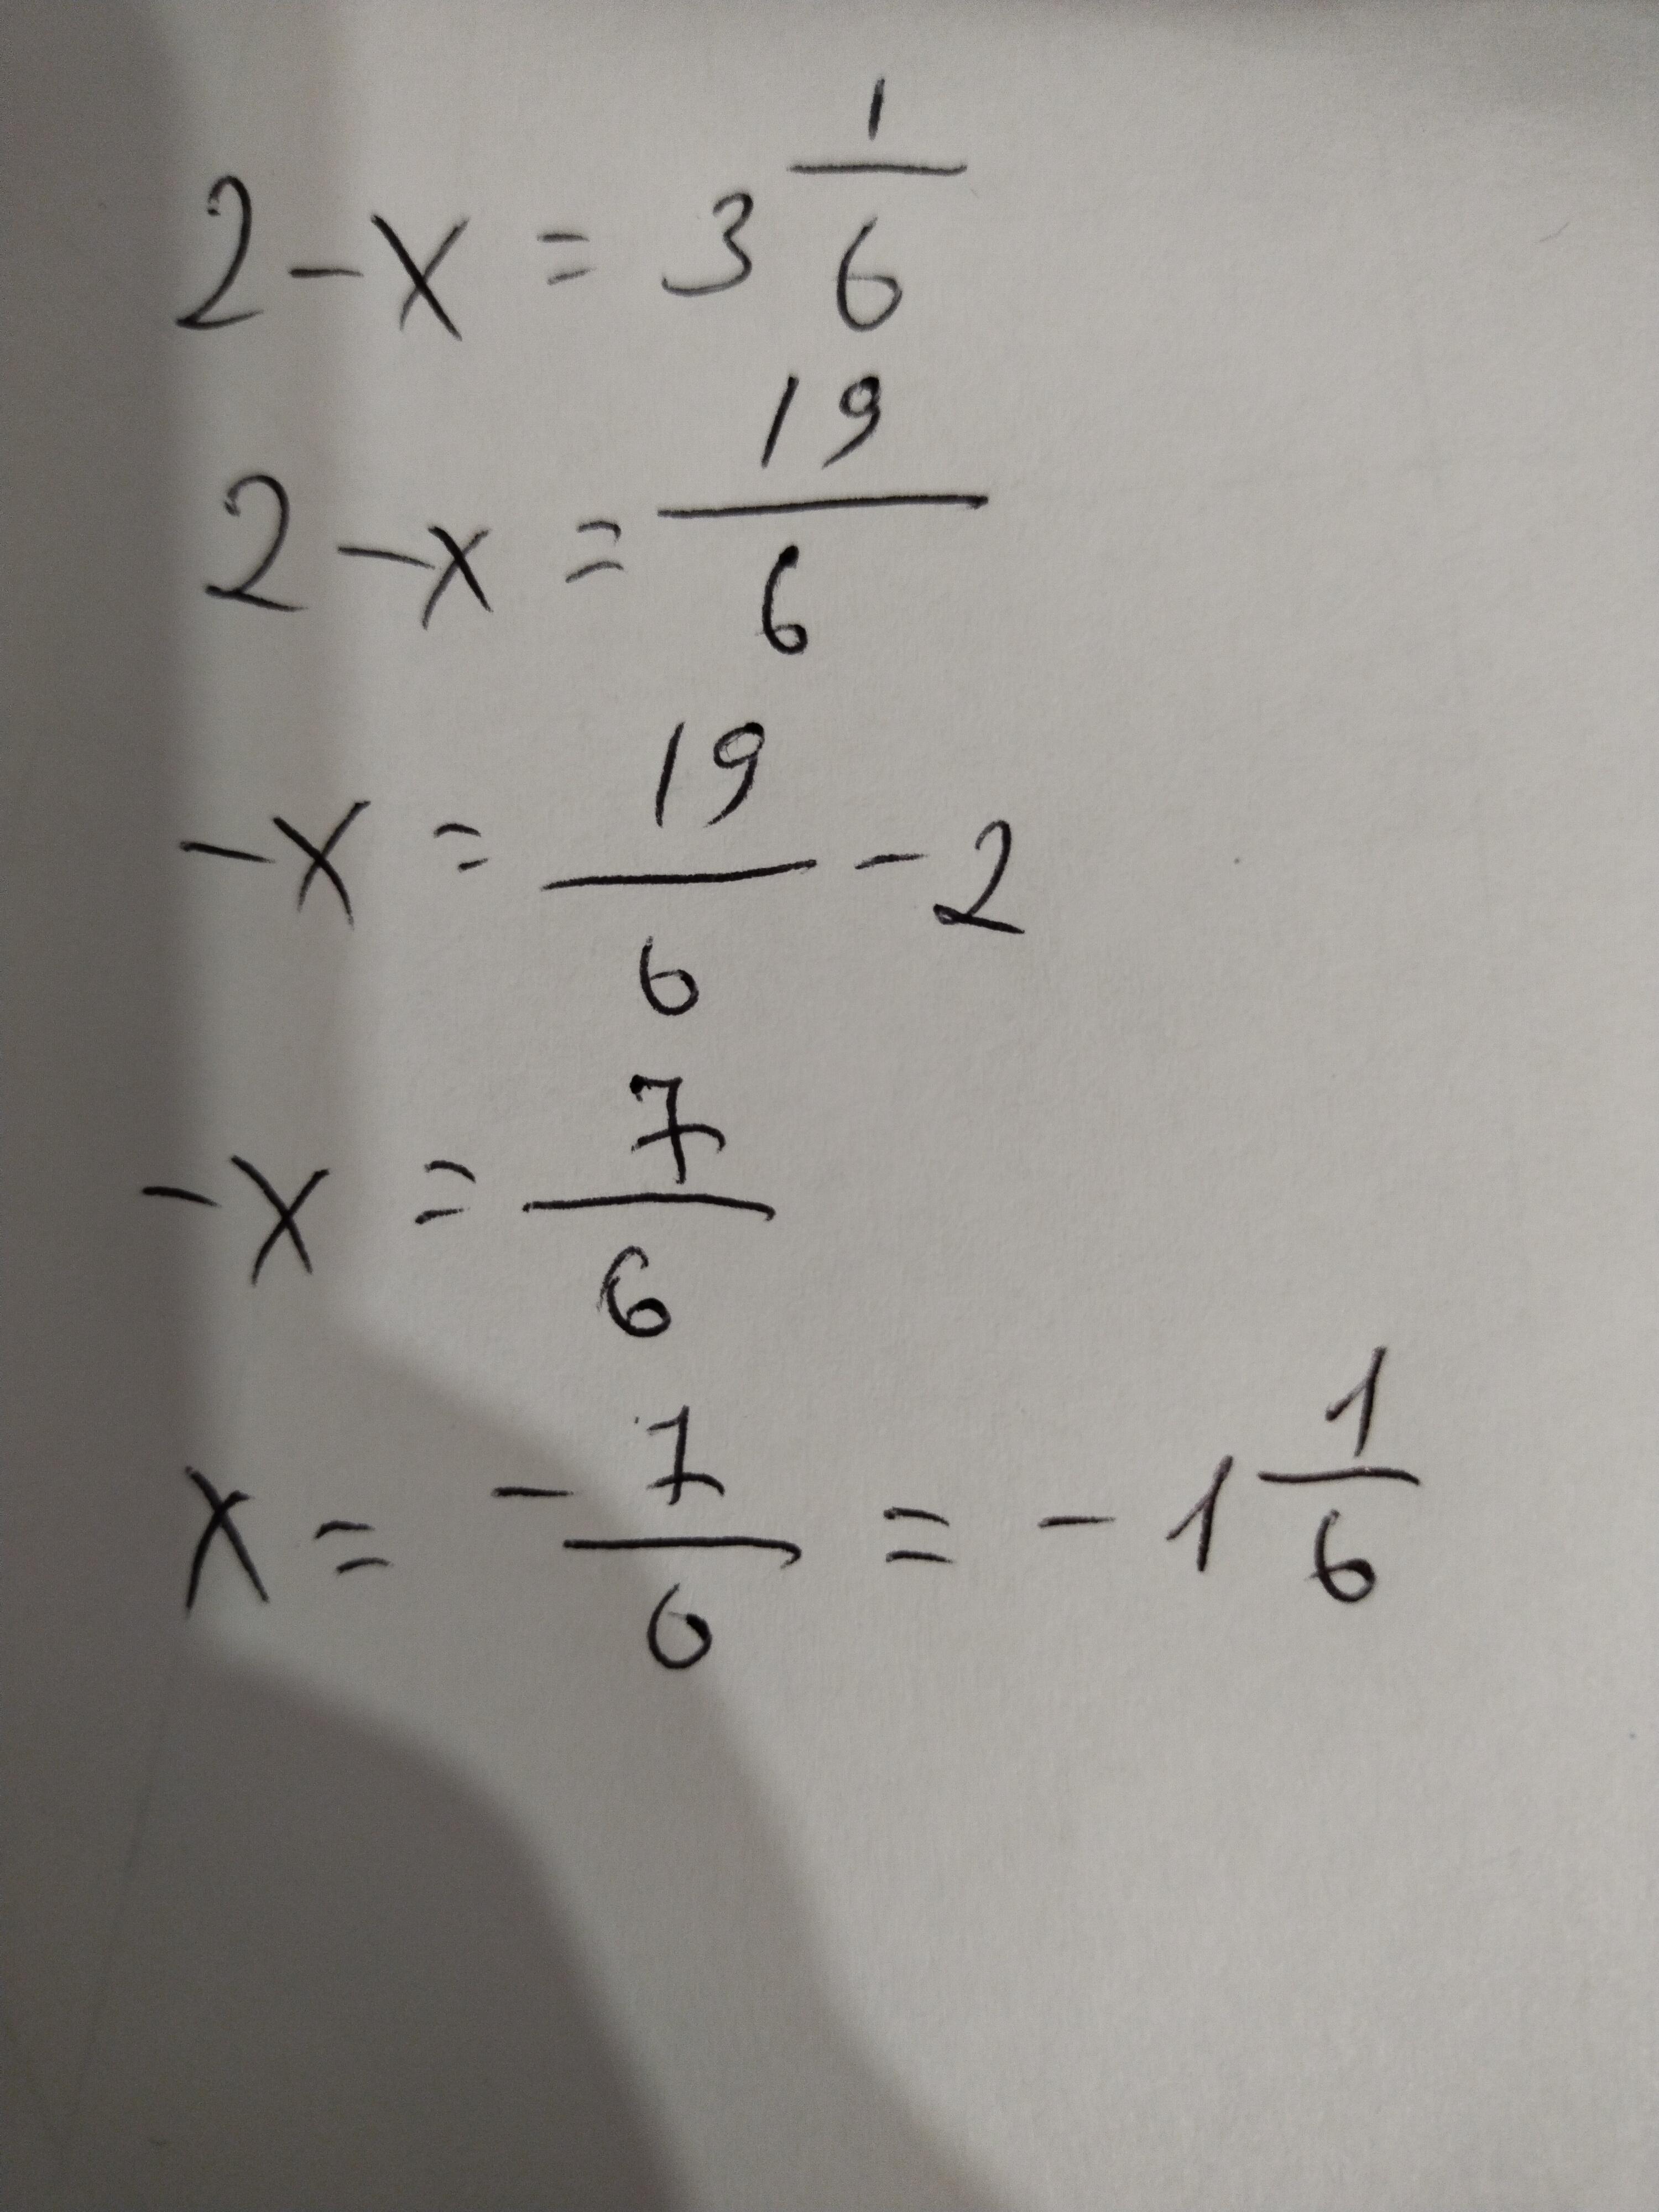 2 - x = 3 1/6
2 - x = 19/6
- x = 19/6 - 2
- x = 7/6
x = - 7/6 = - 1 1/6